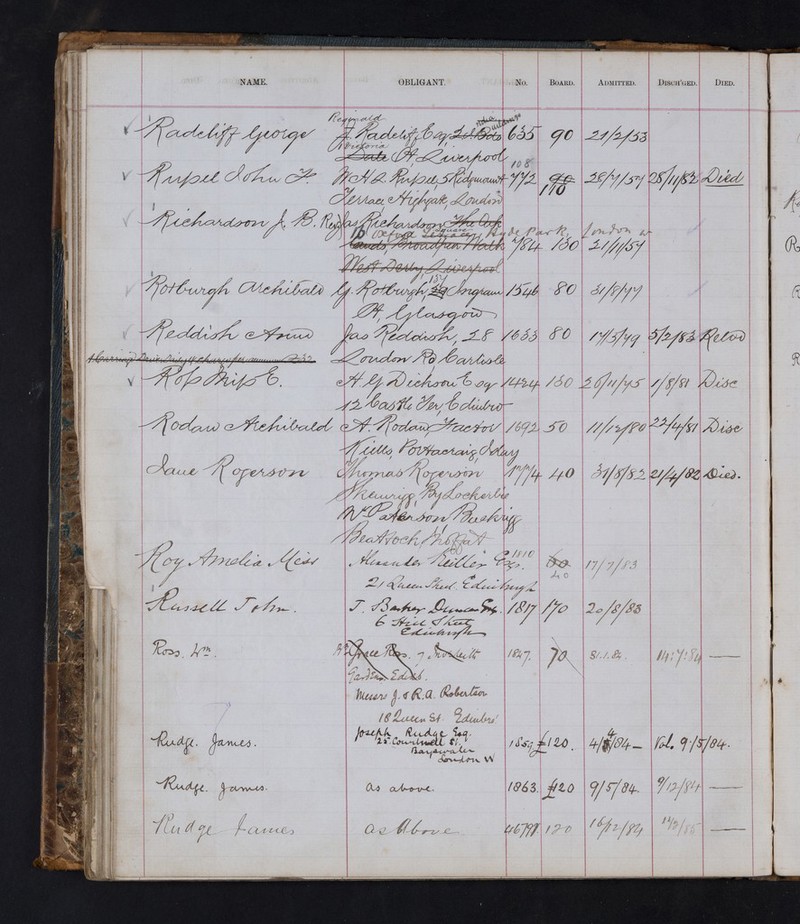 NAME. OBLIGANT. No. BOARD. ADMITTED. DISCH'GED. DIED.
Reginald
Radcliff George J. Radcliff, Esq, 635 90 21/2/53
Dale St Liverpool
108
Russel John F. W H L Russel, 5 Ridgmount 772 90 110 28/11/82 Died
Terrace, Highgate, London
Richardson J. B. Rev Jas Richardson Hyde Park, London W
16 Oxford Square
Broadfern Walk 784 130 21/11/57
West Derby, Liverpool
Roxburgh Archibald G. Roxburgh, Ingram 1546 80 31/8/77
St, Glasgow
Reddish Jas Reddish, 28 1633 80 17/5/79 5/2/83 Relvd
London Rd Carlisle
Ross Miss E. H G Dickson Esq 1424 130 26/11/75 1/8/81 Disc
12 Castle Ter, Edinbro
Rodan Archibald A. Rodan, Factor 1692 50 11/12/80 22/4/81 Disc
Kiells, Portacraig, Islay
Jane Rogerson Thomas Rogerson 1774 40 31/8/82 21/4/82 Died.
By Lockerbie
Mr Paterson
Beattock Moffat
Roy Amelia Miss Alexander Esq. 1810 60 17/7/83
40
21 Queen Street Edinburgh
Russell John. J. Barker Duncan Esq. 1817 170 20/8/83
6 Hill Street
Edinburgh
Ross. Wm. Mrs Grace Ross. 7 1827. 70 31.1.84. 14:7:84 —
Gardens Edinb.
Messrs J. & R.A. Robertson
18 Queen St. Edinbro'
Joseph Rudge Esq.
Rudge. James. £120. 4/4/84 – Vol. 9/5/84.
Bayswater
London W
Rudge. James. as above. 1863. £120 9/5/84. 9/12/84 —
Rudge James as Above 120 16/12/84 —